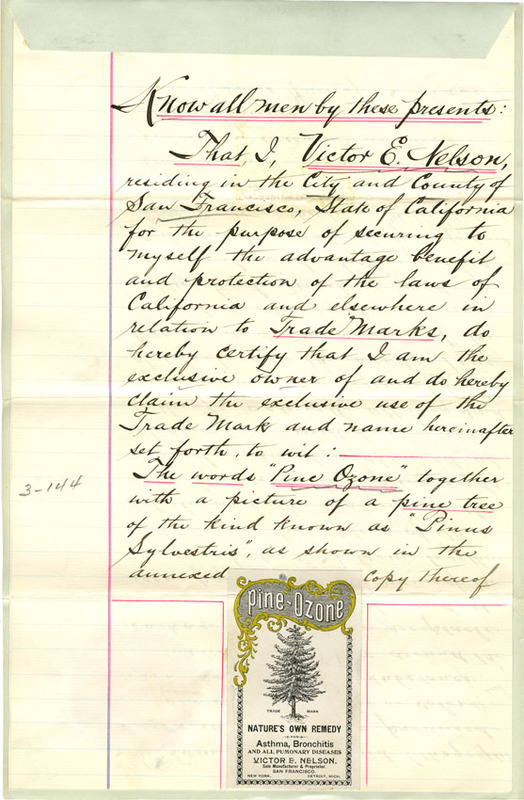 Know all men by these presents:
That, I, Victor E. Nelson,
residing in the City and County of
San Francisco, State of California
for the purpose of securing to
myself the advantage benefit
and protection of the laws of
California and elsewhere in
relation to Trade Marks, do
hereby certify that I am the
exclusive owner of and do hereby
claim the exclusive use of the
Trade Mark and name hereinafter
set forth, to wit:
The words "Pine Ozone" together
3-144
with a picture of a pine tree
of the kind known as "Pinus
Sylvestris", as shown in the
annexed copy thereof
Pine-Ozone
TRADE MARK
NATURE'S OWN REMEDY
-IS FOR-
Asthma, Bronchitis
AND ALL PUMONARY DISEASES
VICTOR E. NELSON.
Sole Manufacturer & Proprietor.
SAN FRANCISCO.
NEW YORK. DETROIT, MICH.